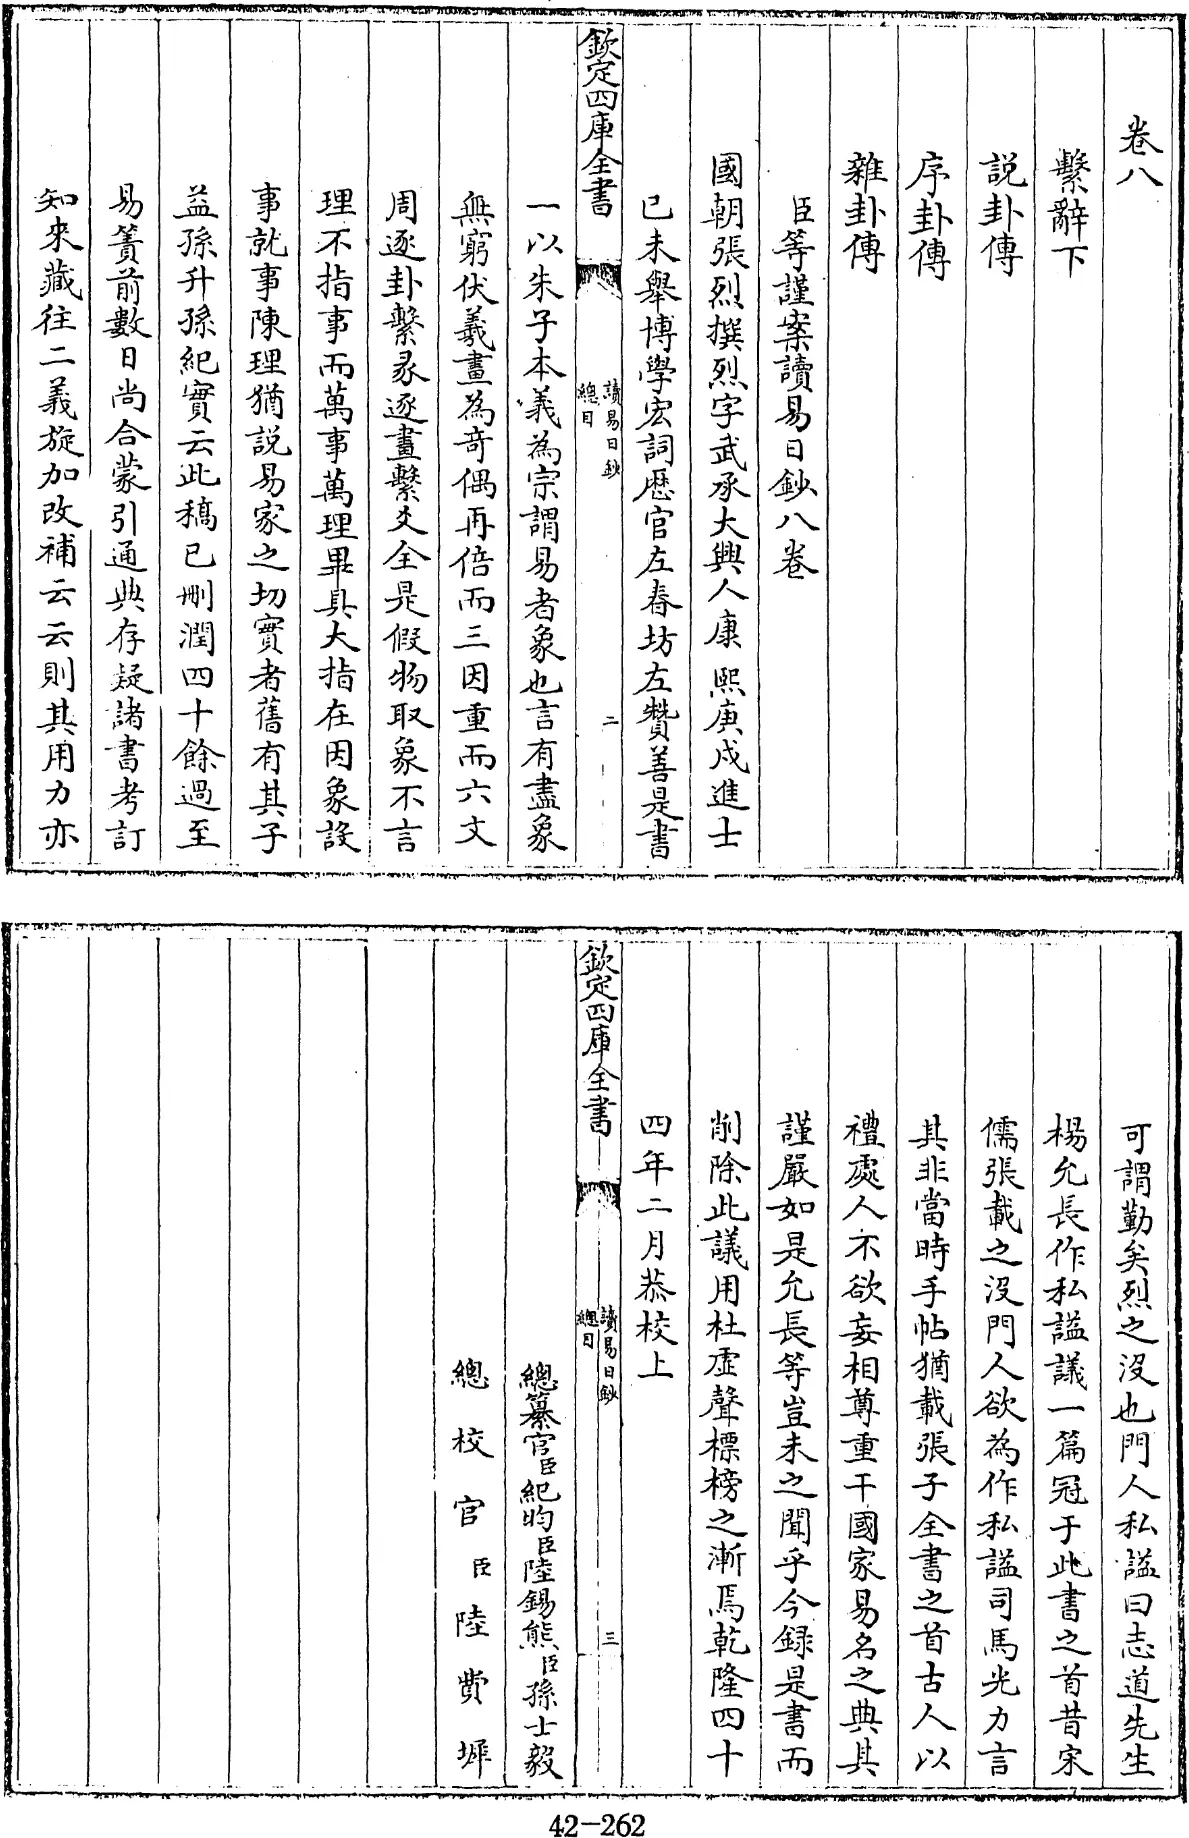 卷八
繫辭下
説卦傳
序卦傳
雜卦傳
臣等謹案讀易日鈔八卷
國朝張烈撰烈字武承大興人康熙庚戌進士
已未舉博學宏詞歴官左春坊左贊善是書
欽定四庫全書
讀易日鈔
總目
二
一以朱子本義為宗謂易者象也言有盡象
無窮伏羲畫為竒偶再倍而三因重而六文
周逐卦繫彖逐畫繫爻全是假物取象不言
理不指事而萬事萬理畢具大指在因象設
事就事陳理猶説易家之切實者舊有其子
益孫升孫紀實云此稿已刪潤四十餘過至
易簀前數日尚合蒙引通典存疑諸書考訂
知來藏往二義旋加改補云云則其用力亦
可謂勤矣烈之沒也門人私諡曰志道先生
楊允長作私諡議一篇冠于此書之首昔宋
儒張載之沒門人欲為作私諡司馬光力言
其非當時手帖猶載張子全書之首古人以
禮處人不欲妄相尊重干國家易名之典其
謹嚴如是允長等豈未之聞乎今録是書而
削除此議用杜虛聲標榜之漸焉乾隆四十
四年二月恭校上
欽定四庫全書
讀易日鈔
總目
三
總纂官臣紀昀臣陸錫熊臣孫士毅
總校官臣陸費墀
42-262